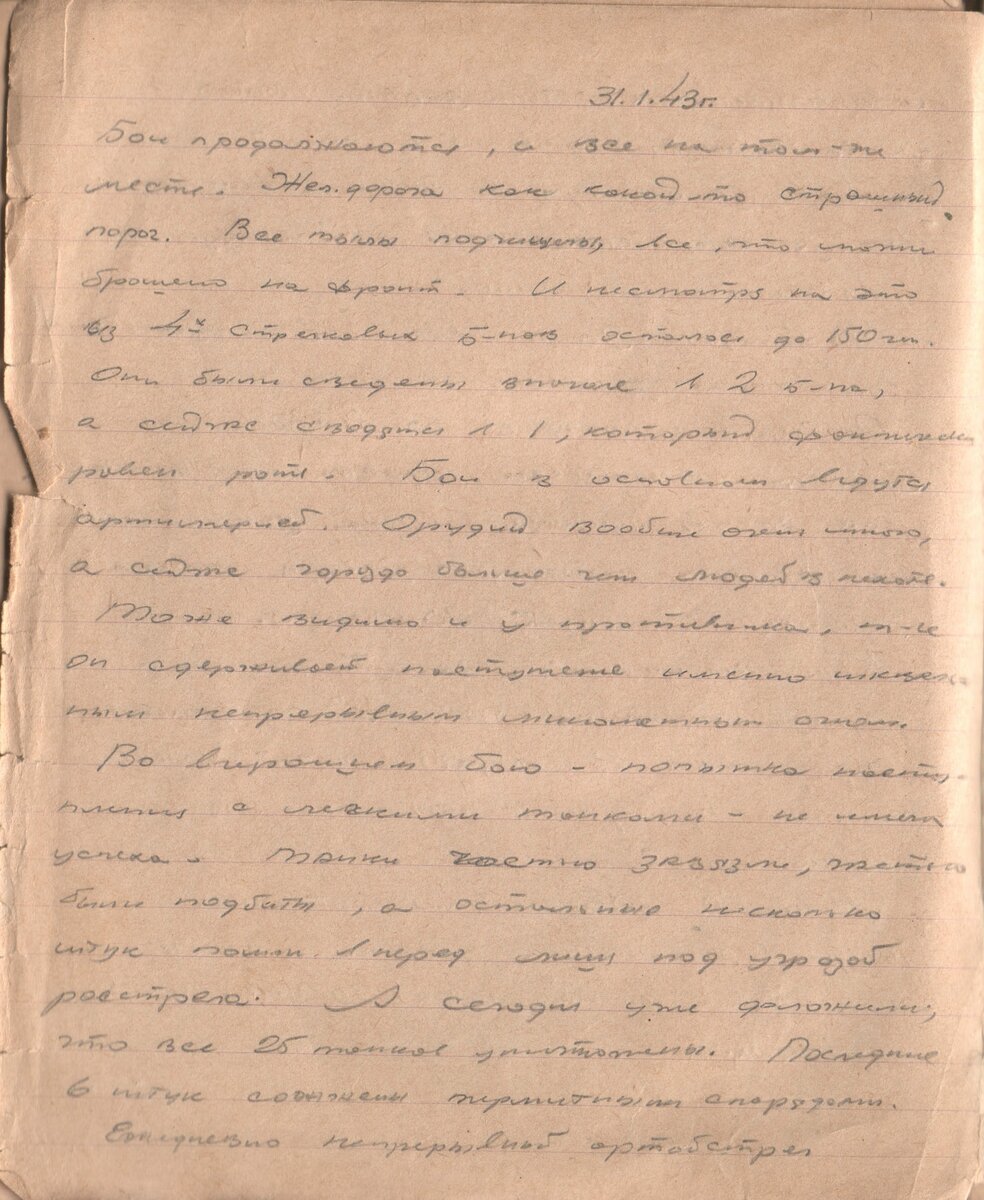 31.1.43г.
Бои продолжаются, и все на том-же
месте. Жел.дорога как какой-то страшный
порог. Все тылы подчищены, все, что можно
брошено на фронт. И несмотря на это
из 4х стрелковых б-нов осталось до 150 чел.
Они были сведены вначале в 2 б-на,
а сейчас сводятся в 1, который фактически
равен роте. Бои в основном ведутся
артиллерией. Орудий вообще очень много,
а сейчас гораздо больше чем людей в пехоте.
Тоже видимо и у противника, т-к
он сдерживает наступление именно
ным непрерывным минометным огнем.
Во вчерашнем бою - попытка насту-
пления с легкими танками - не имела
успеха. Танки частью завязли, частью
были подбиты, а остальные несколько
штук пошли вперед лишь под угрозой
расстрела. А сегодня уже доложили,
что все 25 танков уничтожены. Последние
6 штук сожжены термитными снарядами.
Ежедневно непрерывный артобстрел